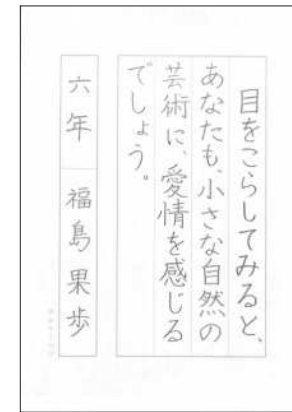 目をこらしてみると、
あなたも、小さな自然の
芸術に、愛情を感じる
でしょう。
六年 福島果歩